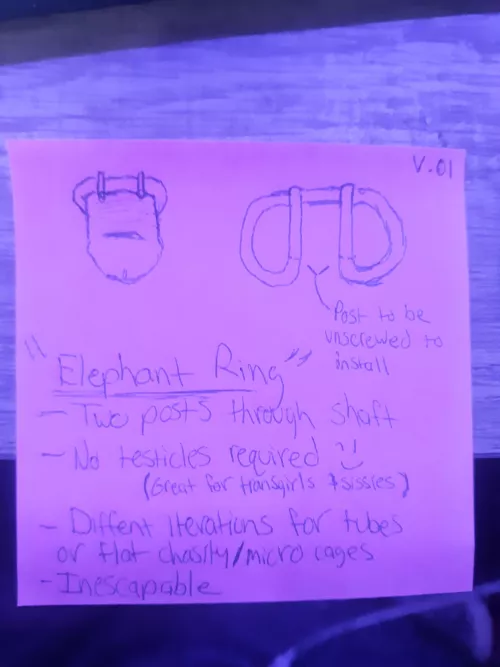 V.01
Post to be
unscrewed to
install
"Elephant Ring"
- Two posts through shaft
- No testicles required :)
(Great for transgirls & sissies)
- Diffent iterations for tubes
or flat chasity/micro cages
- Inescapable